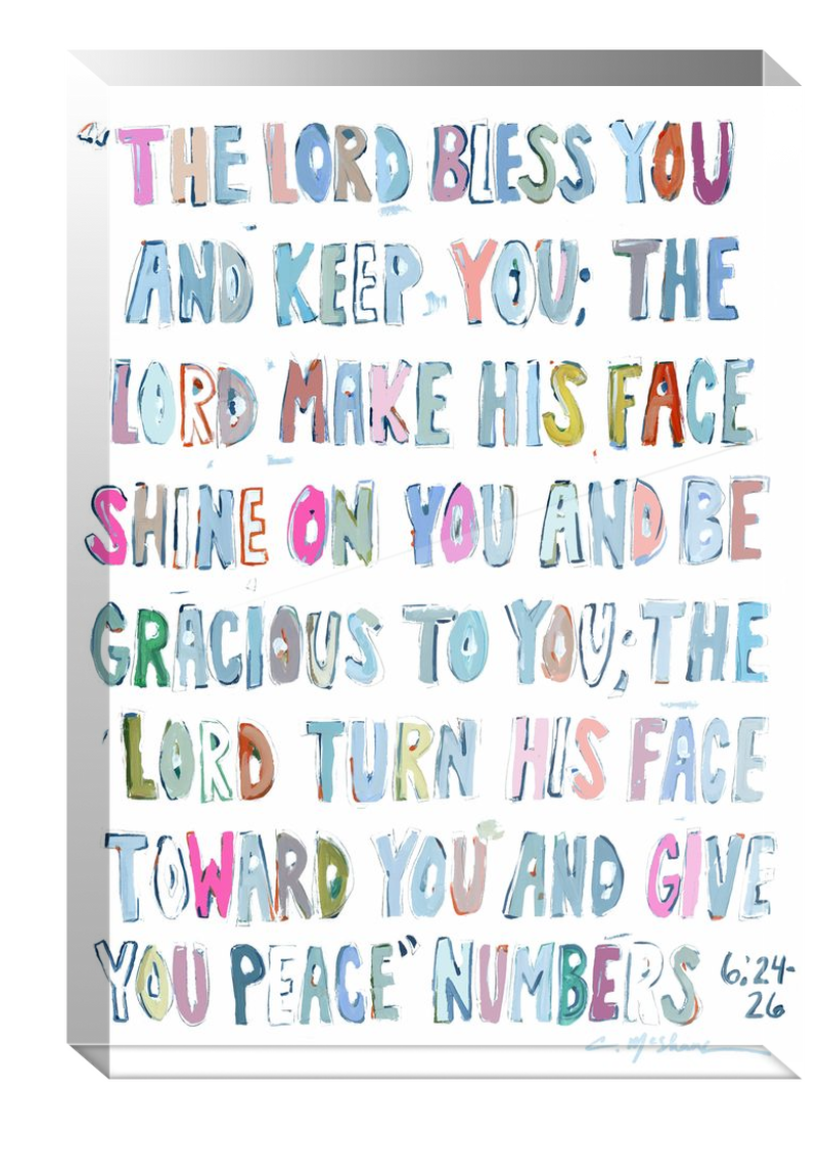 “THE LORD BLESS YOU
AND KEEP YOU; THE
LORD MAKE HIS FACE
SHINE ON YOU AND BE
GRACIOUS TO YOU; THE
LORD TURN HIS FACE
TOWARD YOU AND GIVE
YOU PEACE” NUMBERS 6:24-
26
C. McShane